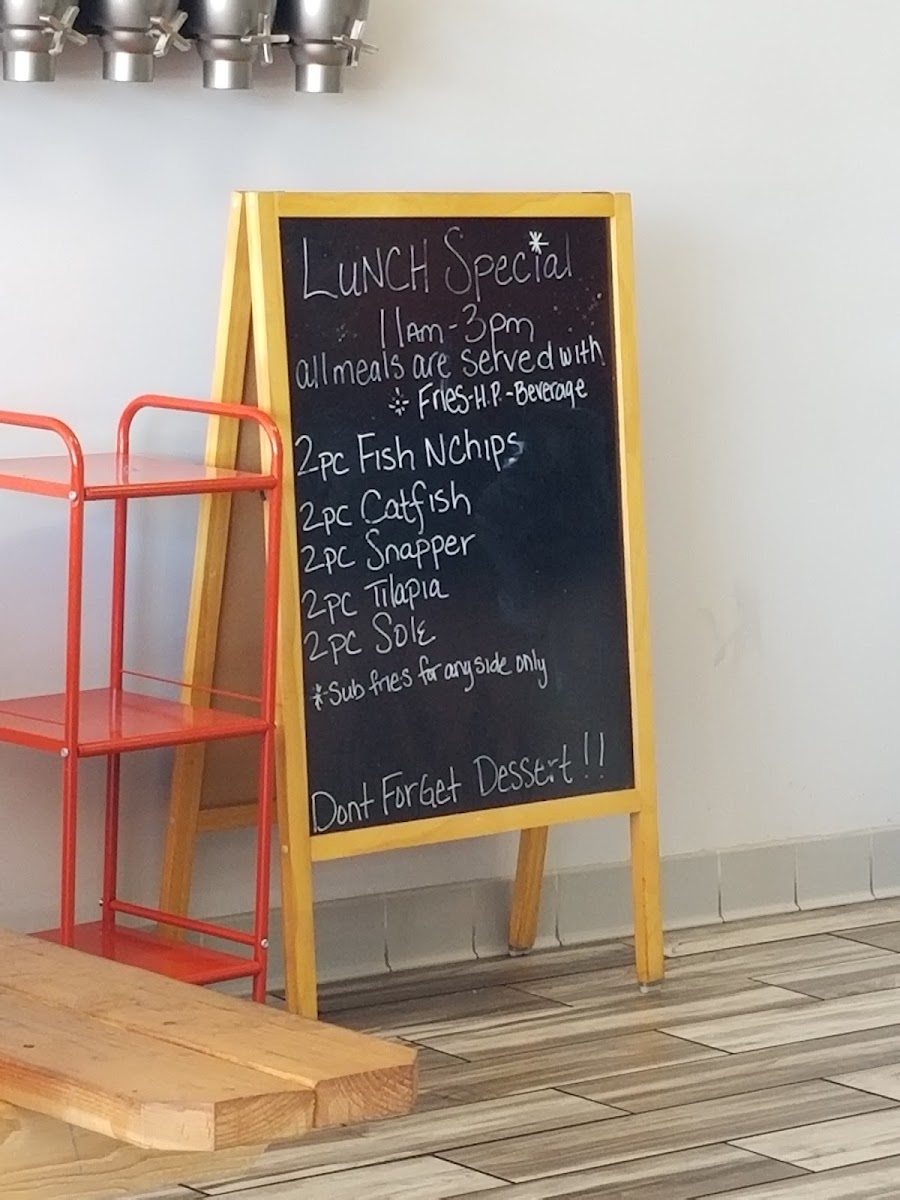 LUNCH Special
11am-3pm
all meals are served with
* Fries-H.P.-Beverage
2pc Fish N Chips
2pc Catfish
2pc Snapper
2pc Tilapia
2pc Sole
*-Sub fries for any side only
Dont ForGet Dessert!!